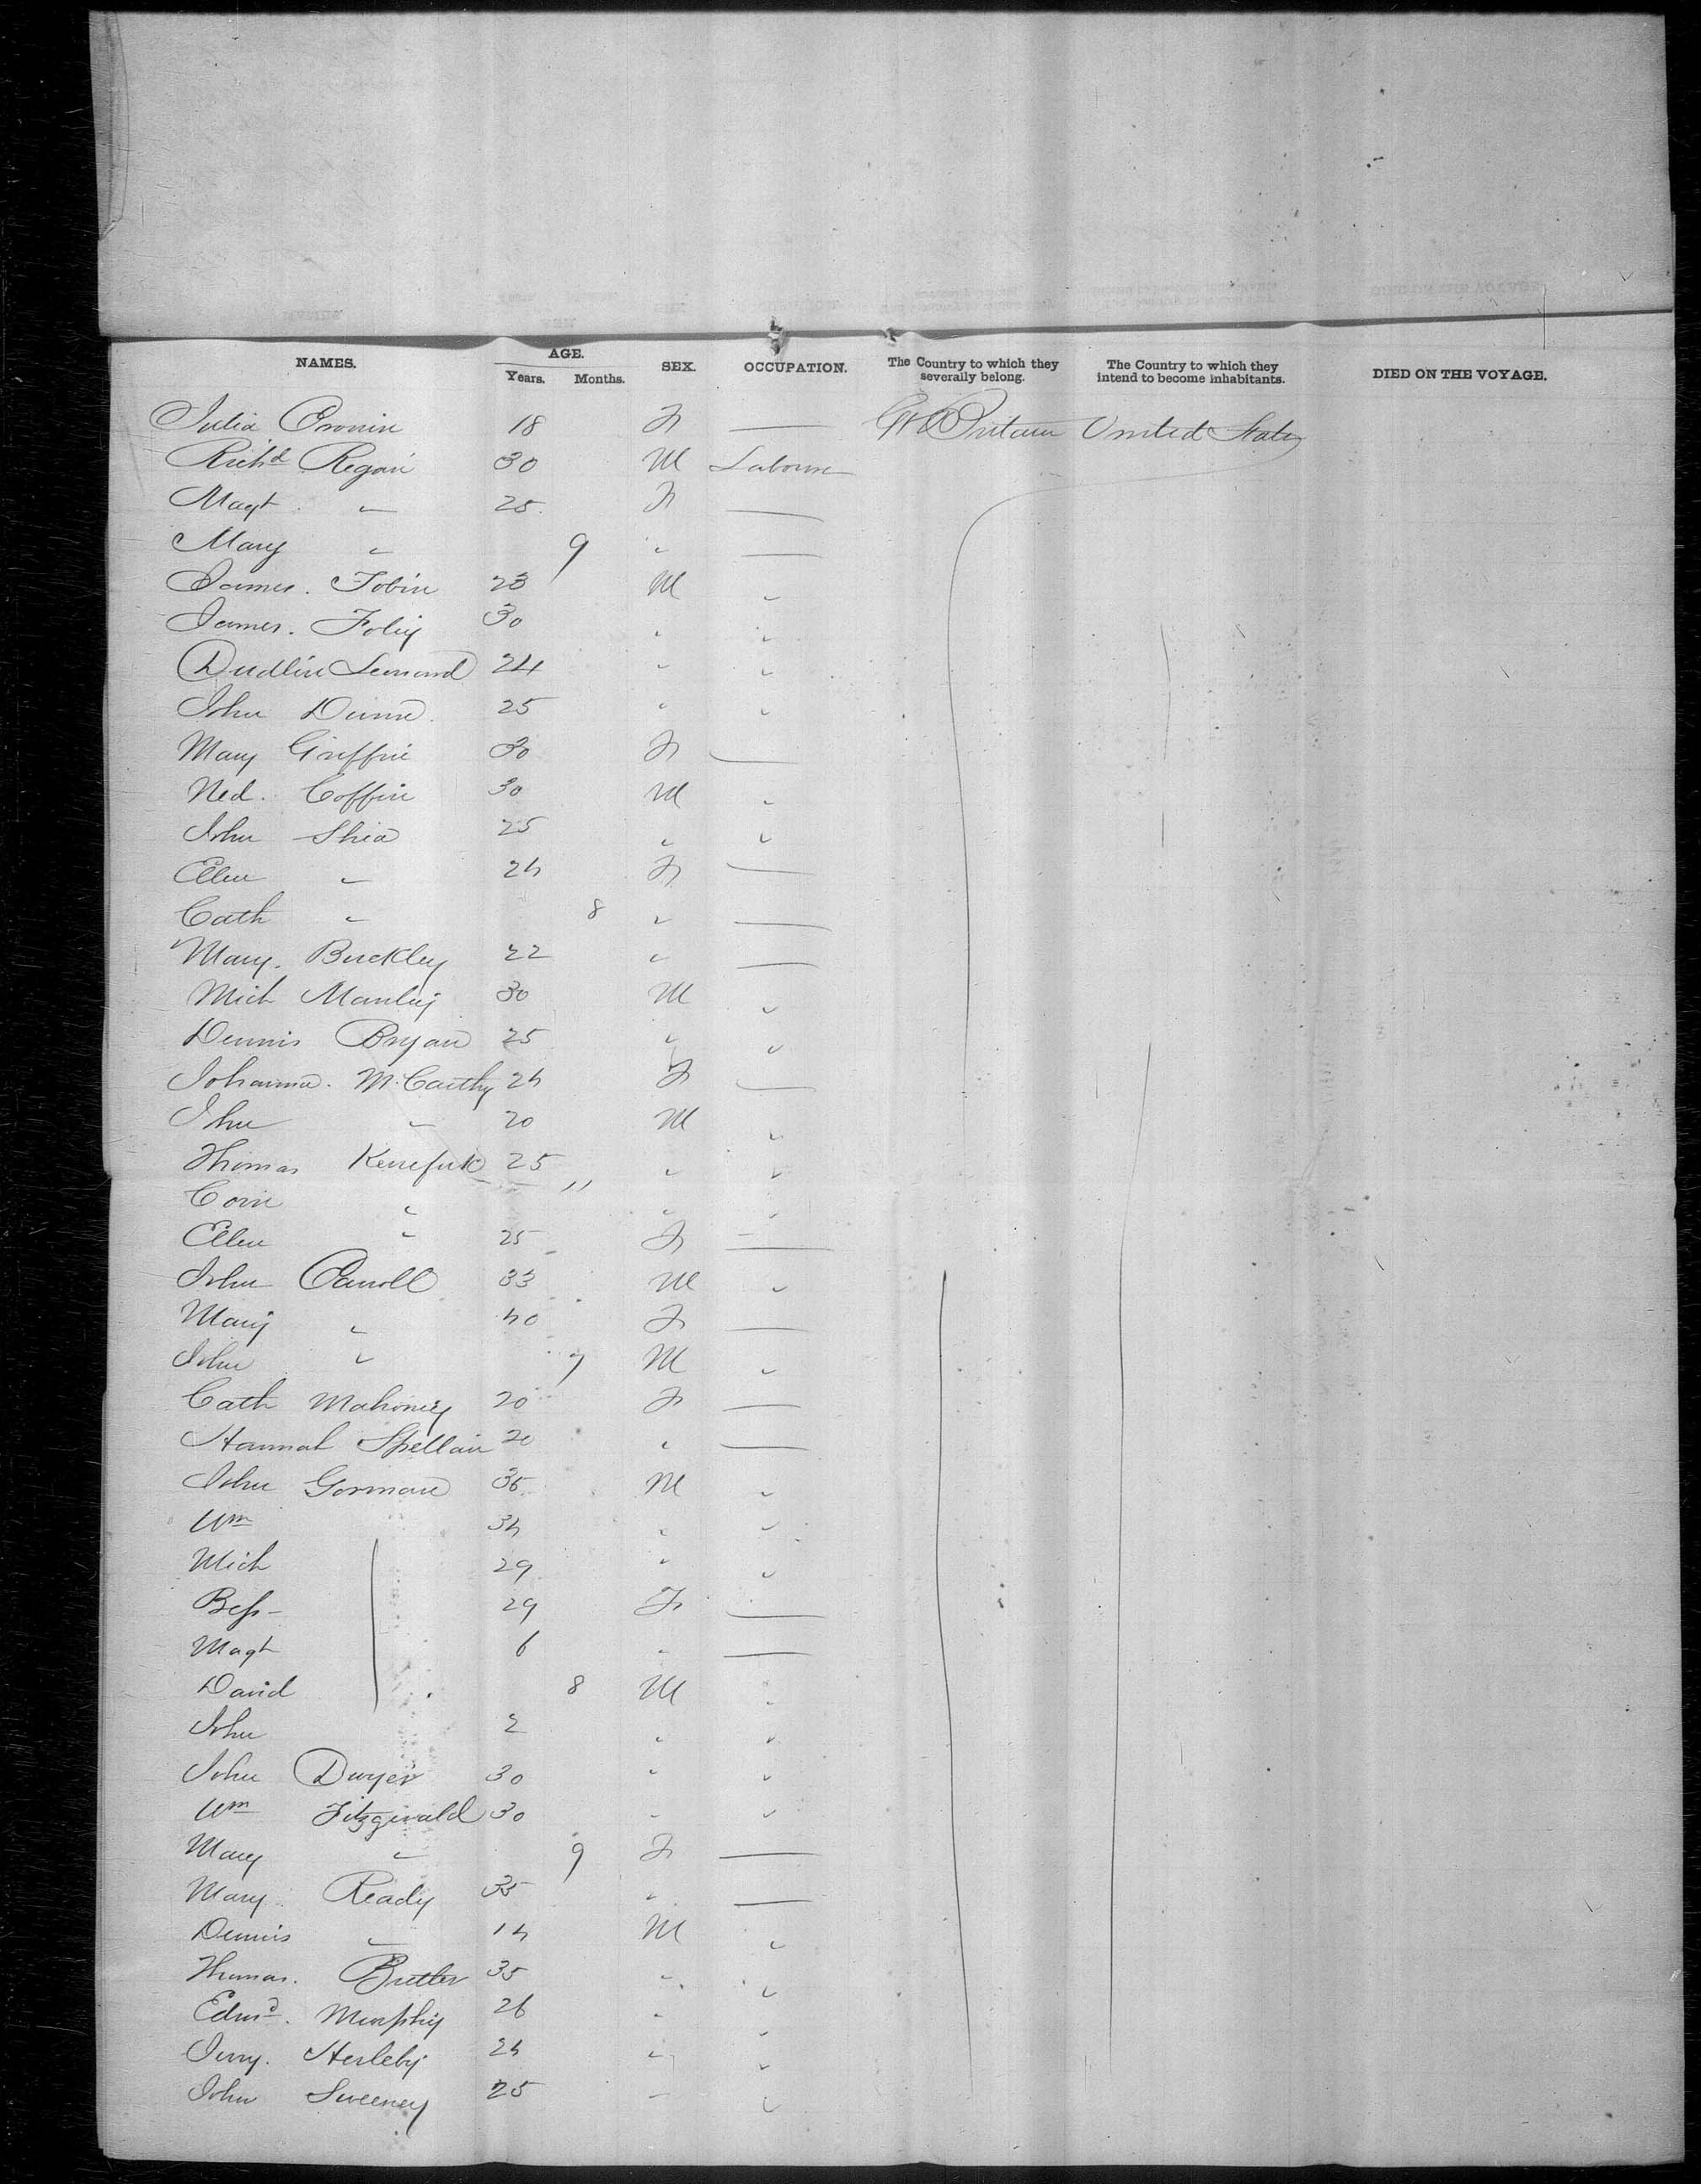 NAMES. AGE. SEX. OCCUPATION. The Country to which they severally belong. The Country to which they intend to become inhabitants. DIED ON THE VOYAGE.
Years. Months.
Julia Cronin 18 F — Gt Britain United States
Richd Regan 30 M Labourer
Magt " 25 F —
Mary " 9 " —
James. Tobin 23 M "
James. Foley 30 " "
Leonard 24 " "
John Dunne 25 " "
Mary Griffin 30 F —
Ned. Coffin 30 M "
John Shea 25 " "
Ellen " 24 F —
Cath " 8 " —
Mary. Buckley 22 " —
Mich Manley 30 M "
Dennis Bryan 25 " "
Johanna. McCarthy 24 F —
John " 20 M "
Thomas 25 " "
Corn " 11 " "
Ellen " 25 F —
John Carroll 33 M "
Mary " 40 F —
John " 7 M "
Cath Mahoney 20 F —
Hannah Spellan 20 " —
John Gorman 35 M "
Wm 34 " "
Mich 29 " "
Bess 29 F —
Magt 6 " —
David 8 M "
John 2 " "
John Dwyer 30 " "
Wm Fitzgerald 30 " "
Mary " 9 F —
Mary Ready 35 " —
Dennis " 14 M "
Thomas. Butler 35 " "
Edmd. Murphy 26 " "
Jerry. 24 " "
John Sweeney 25 " "